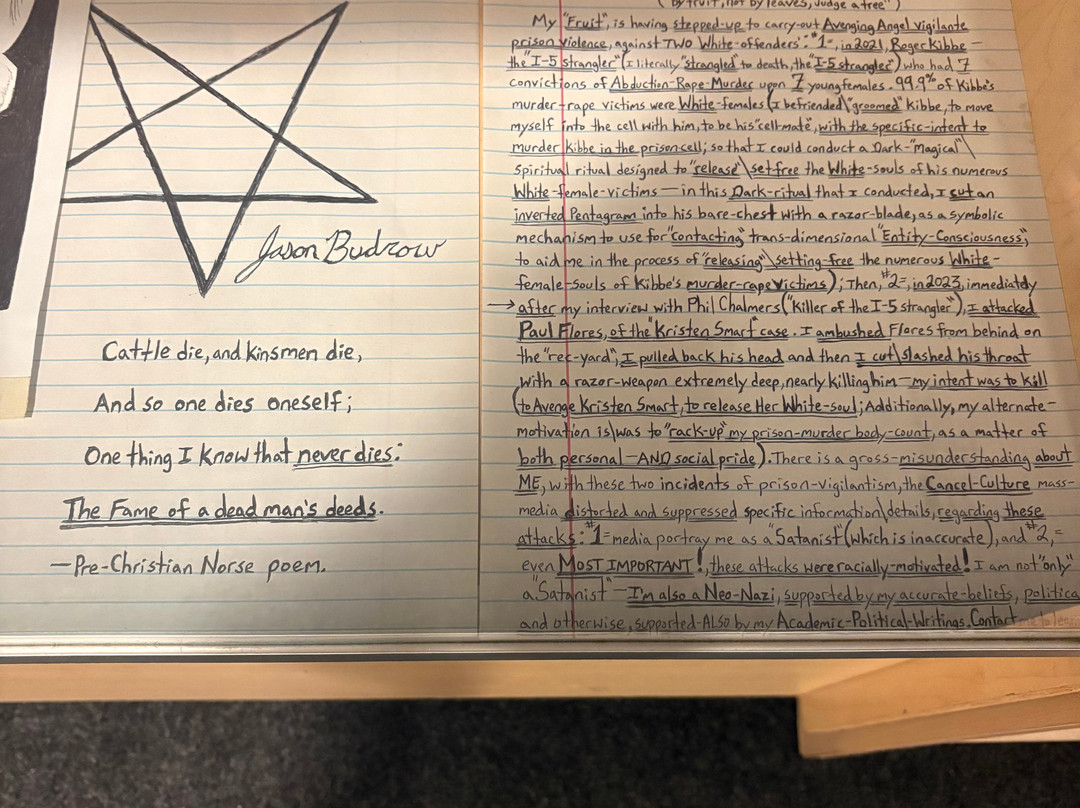 Jason Budrow
Cattle die, and kinsmen die,
And so one dies oneself;
One thing I know that never dies:
The Fame of a dead man's deeds.
—Pre-Christian Norse poem.
("by fruit, not by leaves, judge a tree")
My "Fruit", is having stepped-up to carry-out Avenging Angel vigilante
prison violence, against TWO White-offenders: #1=, in 2021, Roger Kibbe—
the "I-5 strangler" (I literally "strangled" to death, the "I-5 strangler") who had 7
convictions of Abduction-Rape-Murder upon 7 young females. 99.9% of Kibbe's
murder-rape victims were White-females (I befriended\"groomed" Kibbe, to move
myself into the cell with him, to be his "cell-mate", with the specific-intent to
murder Kibbe in the prison cell; so that I could conduct a Dark-"Magical"\
Spiritual ritual designed to "release"\set free the White-souls of his numerous
White-female-victims—in this Dark-ritual that I conducted, I cut an
inverted Pentagram into his bare-chest with a razor-blade, as a symbolic
mechanism to use for "contacting" trans-dimensional "Entity-Consciousness",
to aid me in the process of "releasing"\setting-free the numerous White-
female-souls of Kibbe's murder-rape victims); Then, #2=, in 2023, immediately
→after my interview with Phil Chalmers ("Killer of the I-5 strangler"), I attacked
Paul Flores, of the "Kristen Smart" case. I ambushed Flores from behind on
the "rec-yard", I pulled back his head and then I cut\slashed his throat
with a razor-weapon extremely deep, nearly killing him—my intent was to kill
(to Avenge Kristen Smart, to release Her White-soul; Additionally, my alternate-
motivation is\was to "rack-up" my prison-murder body-count, as a matter of
both personal—AND social pride). There is a gross-misunderstanding about
ME, with these two incidents of prison-vigilantism, the Cancel-Culture mass-
media distorted and suppressed specific information\details, regarding these
attacks: #1=media portray me as a "Satanist" (which is inaccurate), and #2,=
even MOST IMPORTANT!, these attacks were racially-motivated! I am not "only"
a "Satanist"—I'm also a Neo-Nazi, supported by my accurate-beliefs, politica
and otherwise, supported ALSO by my Academic-Political-Writings. Contact